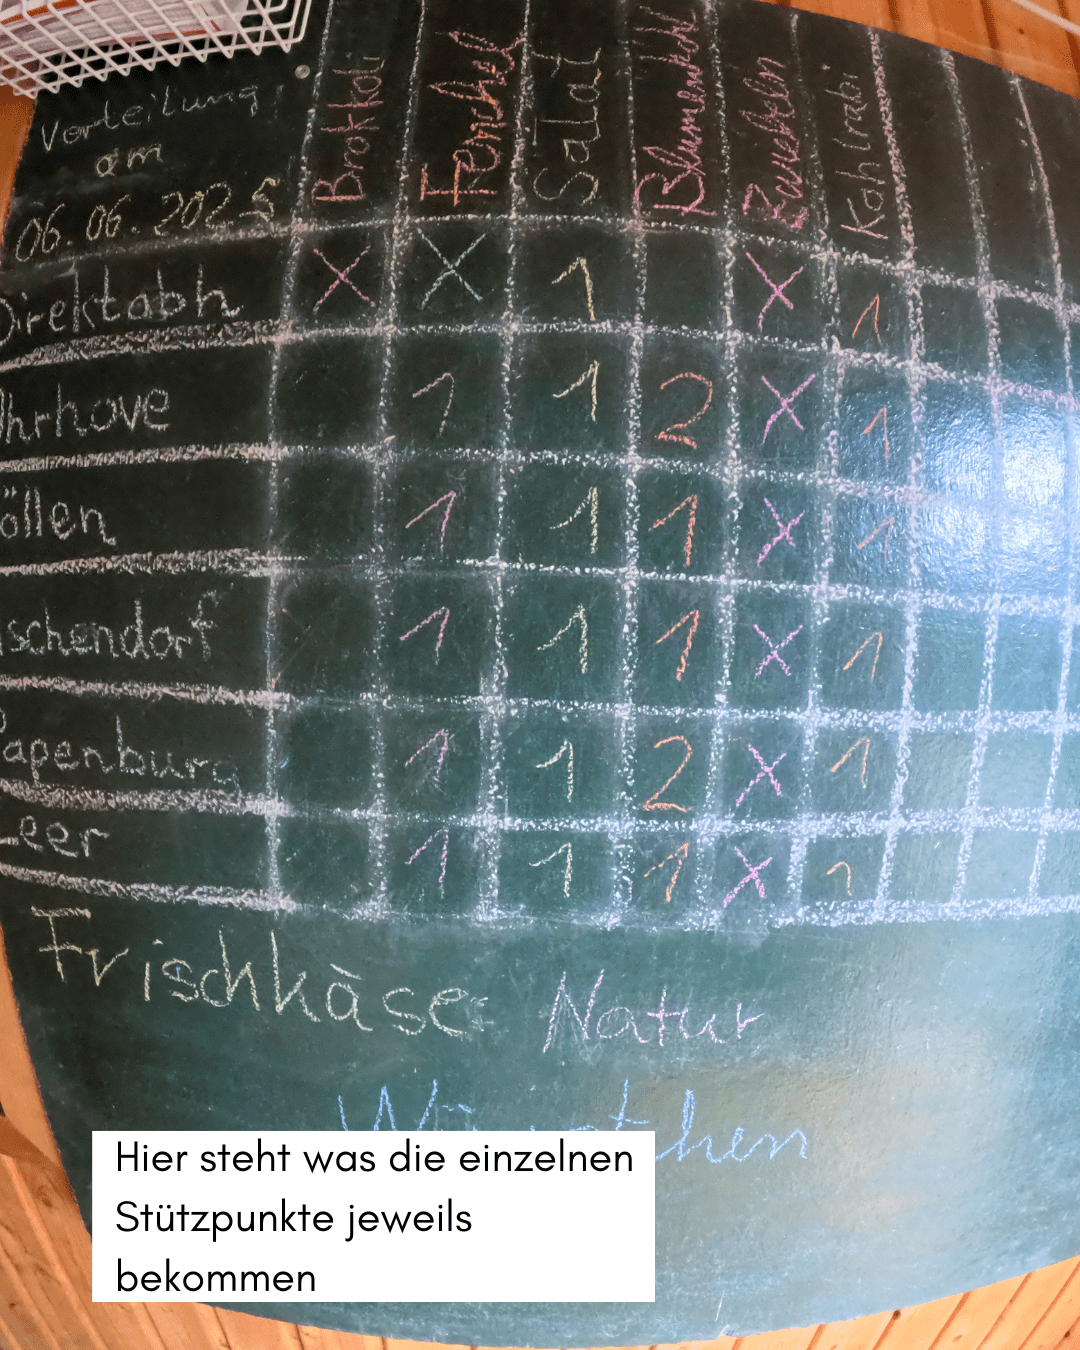 Verteilung
am
06.06.2025
Brokkoli
Fenchel
Salat
Blumenkohl
Kohlrabi
Direktabh X X 1 X 1
Ihrhove 1 1 2 X 1
öllen 1 1 1 X 1
schendorf 1 1 1 X 1
Papenburg 1 1 2 X 1
Leer 1 1 1 X 1
Frischkäse Natur
Hier steht was die einzelnen
Stützpunkte jeweils
bekommen